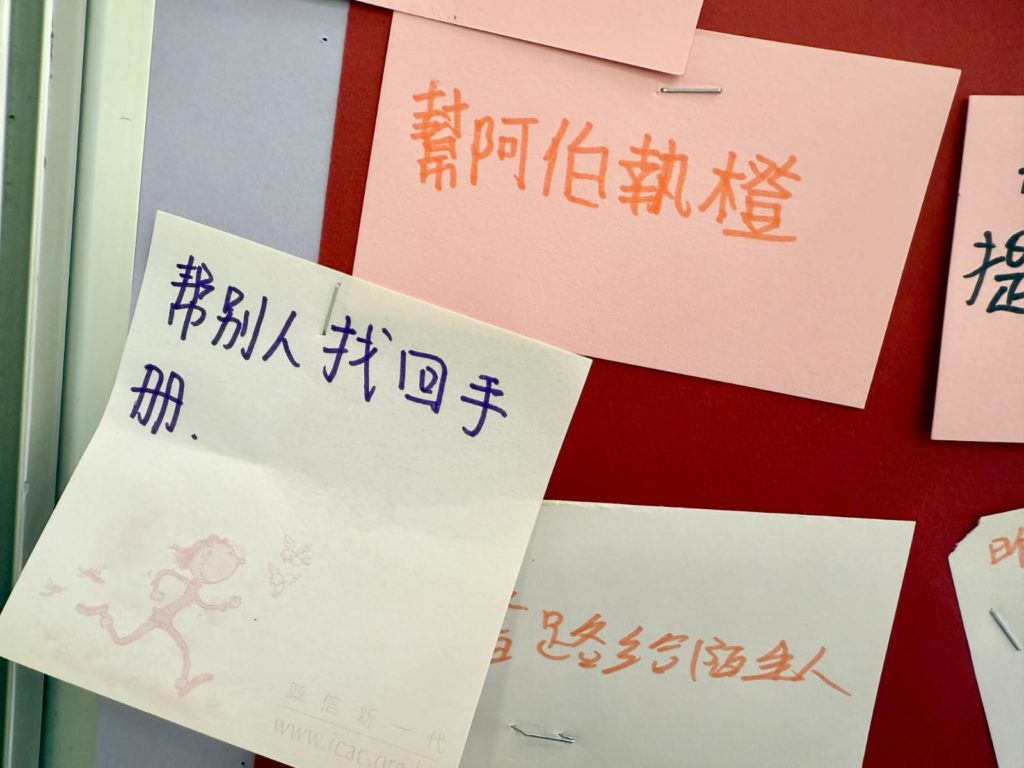 幫阿伯執橙
帮别人找回手
册.
提
路給陌生人
誠信新一代
www.icac.org.